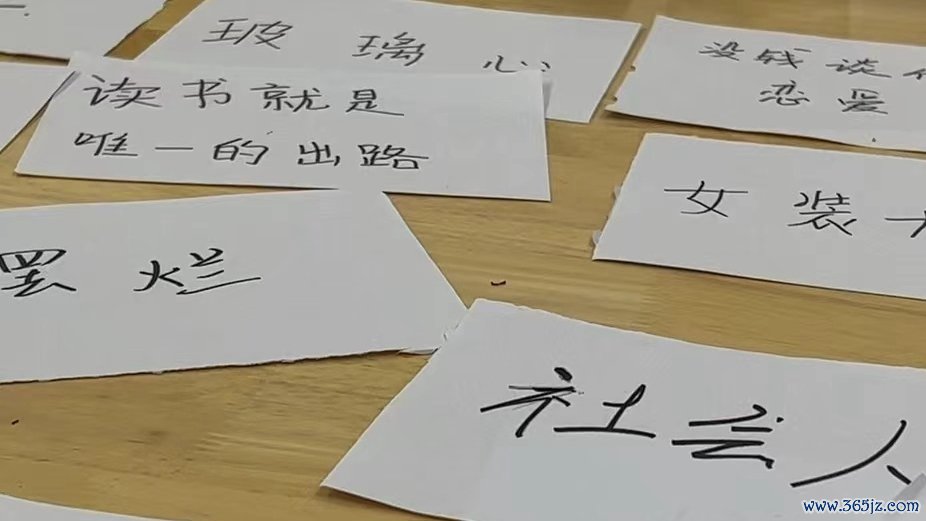 玻璃心
没钱谈
恋爱
读书就是
唯一的出路
女装
罢烂
社会人
www.365jz.com